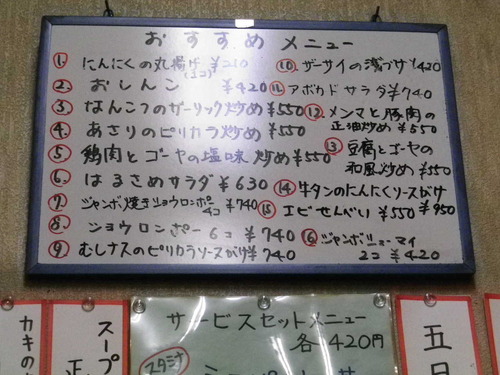 おすすめ メニュー
① にんにくの丸揚げ ¥210
(1コ)
② おしんこ ¥420
③ なんこつのガーリック炒め ¥550
④ あさりのピリカラ炒め ¥550
⑤ 鶏肉とゴーヤの塩味炒め ¥550
⑥ はるさめサラダ ¥630
⑦ ジャンボ焼きショウロンポー
4コ ¥740
⑧ ショウロンポー 6コ ¥740
⑨ むしナスのピリカラソースがけ ¥740
⑩ ザーサイの浅づけ ¥420
⑪ アボカドサラダ ¥740
⑫ メンマと豚肉の
正油炒め ¥550
⑬ 豆腐とゴーヤの
和風炒め ¥550
⑭ 牛タンのにんにくソースがけ
¥950
⑮ エビせんべい ¥550
⑯ ジャンボシューマイ
2コ ¥420
カキの
スープ
正
サービスセットメニュー
各420円
スタミナ
五目